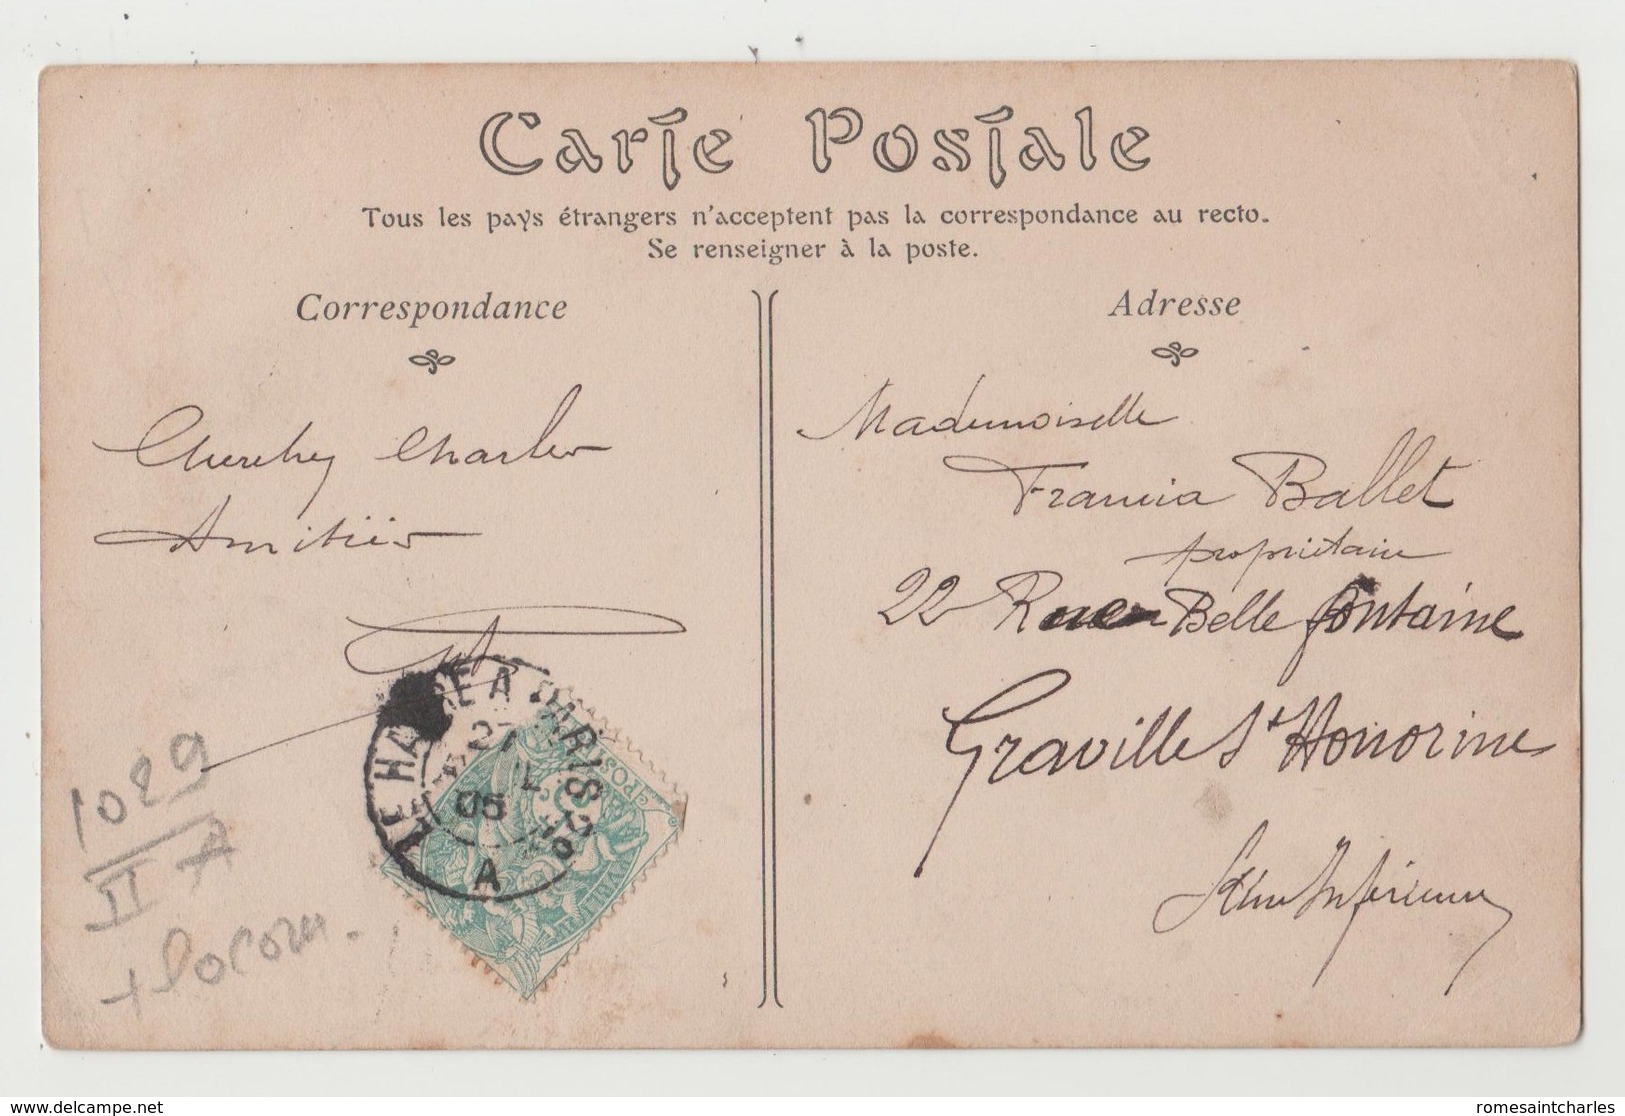 Carte Postale
Tous les pays étrangers n'acceptent pas la correspondance au recto.
Se renseigner à la poste.
Correspondance
Charles
Amitiés
1029
II A
+ locom.
LE HAVRE A PARIS
27
05
A
POSTES
Adresse
Mademoiselle
Francia Ballet
propriétaire
22 Rue Belle fontaine
Graville St Honorine
Seine Inférieure
www.delcampe.net
romesaintcharles